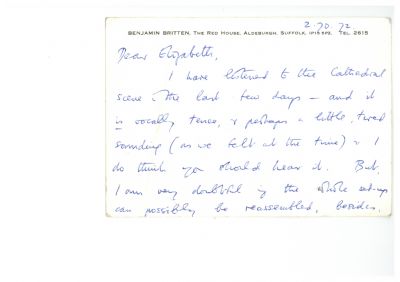 2.70.72
BENJAMIN BRITTEN, THE RED HOUSE, ALDEBURGH, SUFFOLK, IP15 5PZ. TEL. 2615
Dear Elizabeth,
I have listened to the Cathedral
scene in the last few days – and it
is vocally tense, & perhaps a little tired
sounding (as we felt at the time) & I
do think you should hear it. But
I am very doubtful if the whole set-up
can possibly be reassembled, besides,